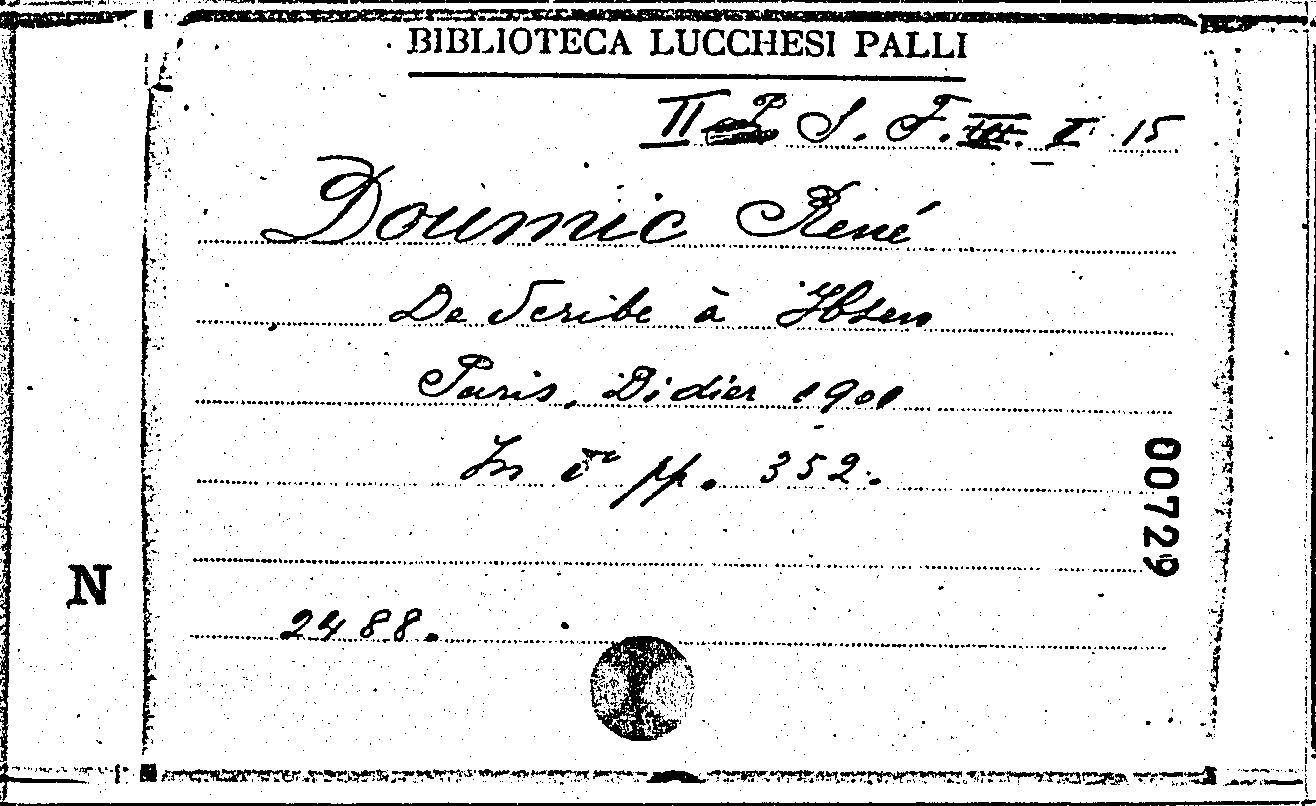 BIBLIOTECA LUCCHESI PALLI
II S. F. I 15
Doumic René
De Scribe à Ibsen
Paris, Didier 1901
In 8° pp. 352.
00729
N
2488.